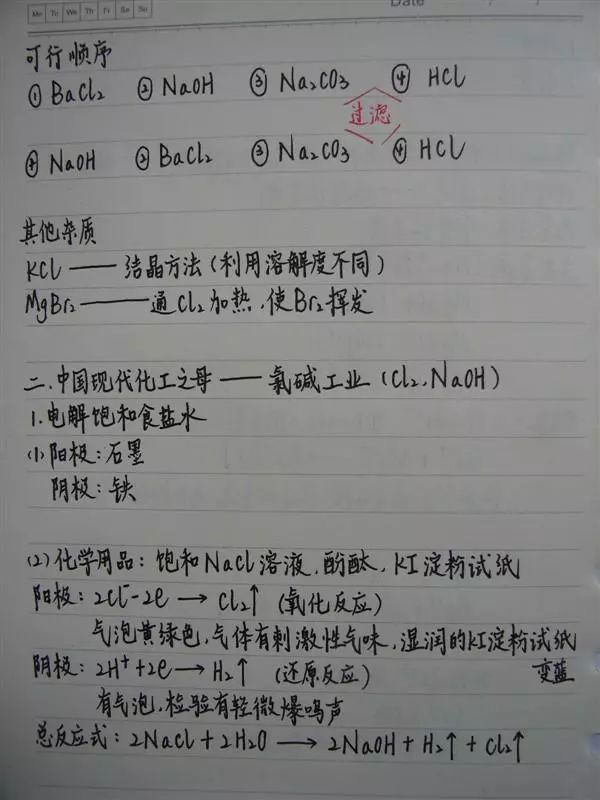 Mo Tu We Th Fr Sa Su
Date
可行顺序
① BaCl2 ② NaOH ③ Na2CO3 ④ HCl
过滤
① NaOH ② BaCl2 ③ Na2CO3 ④ HCl
其他杂质
KCl —— 结晶方法(利用溶解度不同)
MgBr2 —— 通Cl2加热,使Br2挥发
二.中国现代化工之母 —— 氯碱工业(Cl2,NaOH)
1.电解饱和食盐水
(1)阳极:石墨
阴极:铁
(2)化学用品:饱和NaCl溶液,酚酞,KI淀粉试纸
阳极:2Cl⁻-2e → Cl2↑ (氧化反应)
气泡黄绿色,气体有刺激性气味,湿润的KI淀粉试纸
变蓝
阴极:2H⁺+2e → H2↑ (还原反应)
有气泡,检验有轻微爆鸣声
总反应式:2NaCl+2H2O → 2NaOH+H2↑+Cl2↑